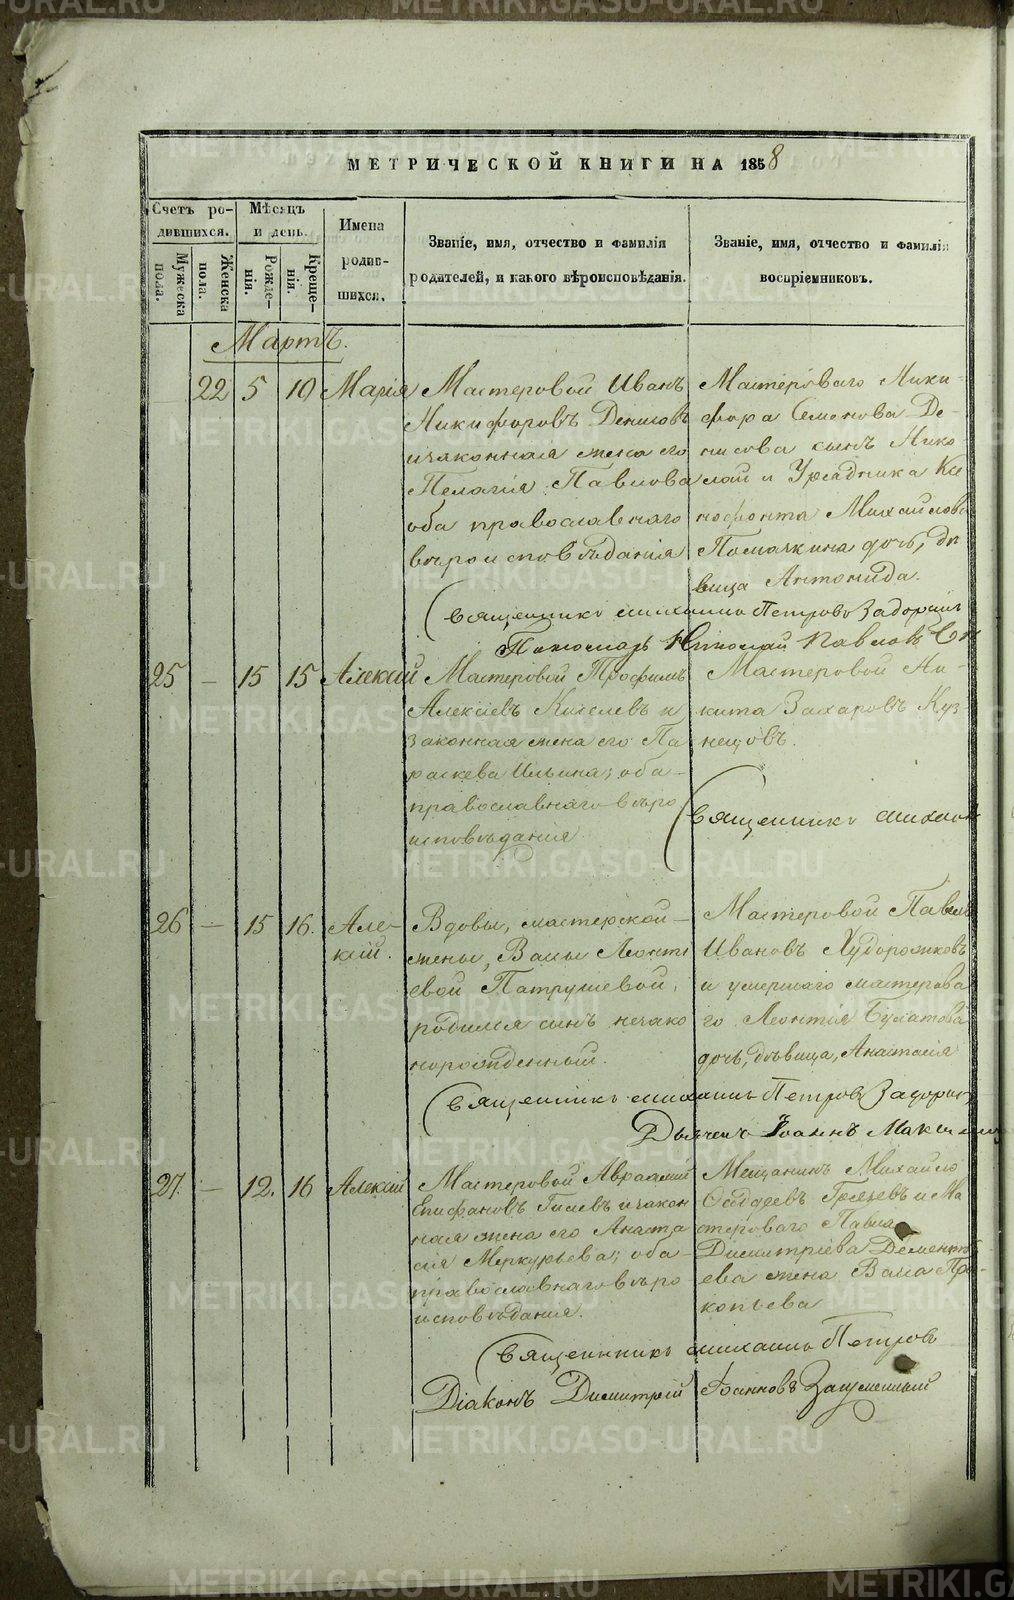 МЕТРИЧЕСКОЙ КНИГИ НА 1858
Счетъ ро-
дившихся.
Мѣсяцъ
и день.
Имена
родив-
шихся.
Званіе, имя, отчество и фамилія
родителей, и какого вѣроисповѣданія.
Званіе, имя, отчество и фамилія
воспріемниковъ.
Мужеска
пола.
Женска
пола.
Рожде-
нія.
Креще-
нія.
Мартъ.
22 5 10 Марія
Мастеровой Иванъ
Никифоровъ Денисовъ
и законная жена его
Пелагія Павлова
оба православнаго
вѣроисповѣданія
Мастероваго Ники-
фора Семенова Де-
нисова сынъ Нико-
лай и Урядника Ксе
нофонта Михайлова
дочь, дѣ
вица Антонида.
Священникъ Михаилъ Петровъ Задорин
Пономарь Николай Павловъ
25 — 15 15 Алексій
Мастеровой Трофимъ
Алексіевъ Киселевъ и
законная жена его Па
раскева Ильина; оба
православнаго вѣро
исповѣданія
Мастеровой Ни-
кита Захаровъ Куз-
нецовъ.
Священникъ Михаил
26 — 15 16. Але-
ксій.
Вдовы, мастерской
жены, Вассы Леонть
евой Патрушевой,
родился сынъ незако
норожденный.
Мастеровой Павелъ
Ивановъ Худорожковъ
и умершаго мастерова
го Леонтія Булатова
дочь, дѣвица, Анастасія
Священникъ Михаилъ Петровъ Задорин
Дьячекъ Іоаннъ Макси
27. — 12. 16 Алексій
Мастеровой Авраамій
Епифановъ Гилевъ и закон
ная жена его Анаста
сія Меркурьева; оба
православнаго вѣро
исповѣданія.
Мещанинъ Михайло
Фаддеевъ и Ма
стероваго Павла
Димитріева Дементь
ева жена Васса Про-
копьева
Священникъ Михаилъ Петровъ
Діаконъ Димитрій Іоанновъ
METRIKI.GASO-URAL.RU